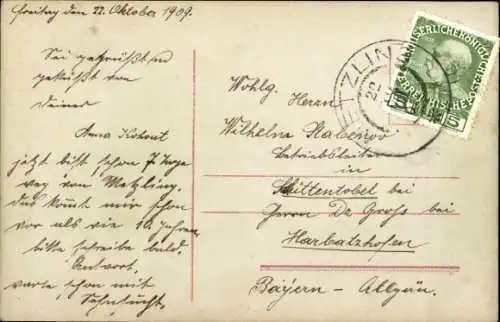 Freitag den 22. Oktober 1909.
Sei gegrüßt und
geküßt von
Deiner
Anna Kohout
jetzt bist schon 7 Tage
weg von Metzling,
das kommt mir schon
vor als wie 10 Jahre,
bitte schreibe bald.
Antwort,
warte schon mit
Sehnsucht.
Wohlg. Herrn
Wilhelm Stabenow
Betriebsleiter
in
Schüttentobel bei
Herrn Dr Grohs bei
Harbatzhofen
Bayern - Allgäu.
METZLING
22
KAISERLICHE KÖNIGLICHE
ÖSTERREICHISCHE POST
5 5